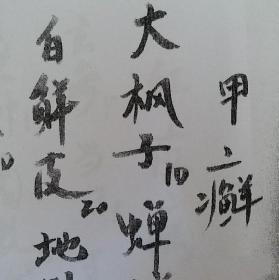 甲癣
大枫子10蝉
白鲜皮20地